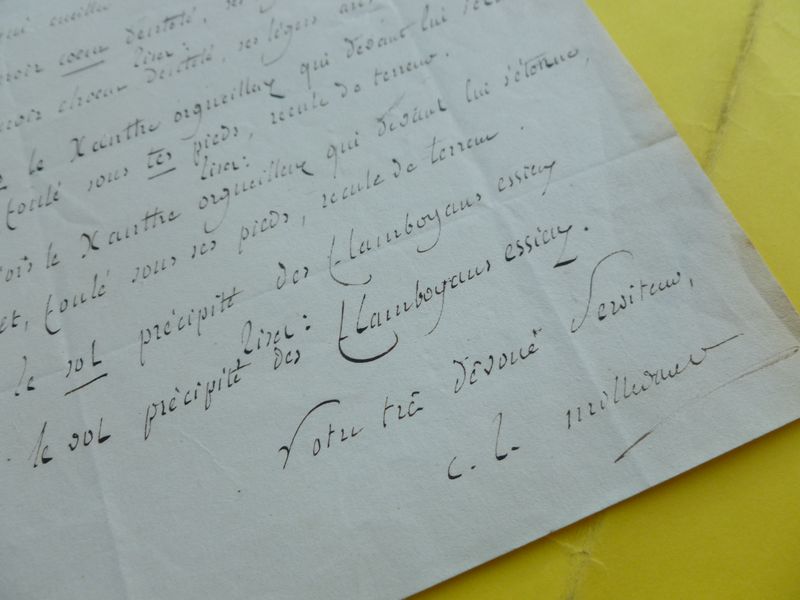 qui cueillit
coeur
lisez:
choeur
le Xanthe orgueilleux qui devant lui
foulé sous tes pieds, recule de terreur.
lisez:
le Xanthe orgueilleux qui devant lui s'étonne,
et, foulé sous ses pieds, recule de terreur.
le sol précipité des flamboyans essieux
lisez:
le vol précipité des flamboyans essieux.
Votre très dévoué Serviteur,
C. L. mollevaut